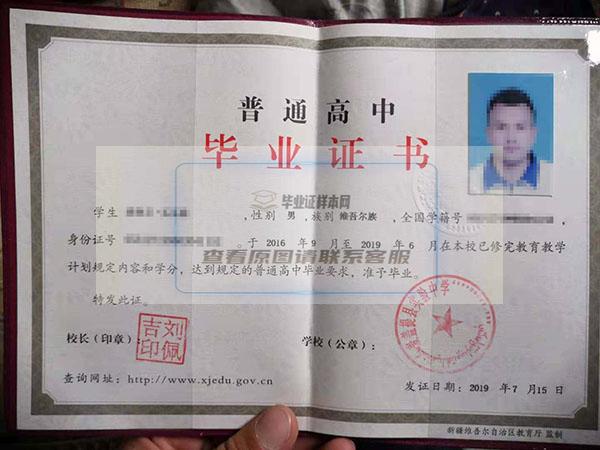 普通高中
毕业证书
毕业证样本网
学生 ,性别 男 ,族别 维吾尔族 ,全国学籍号
身份证号 。于 2016 年 9 月至 2019 年 6 月在本校已修完教育教学
查看原图请联系客服
计划规定内容和学分，达到规定的普通高中毕业要求，准予毕业。
特发此证。
校长（印章）：
刘佩吉印
学校（公章）：
县实验中学
查询网址：http://www.xjedu.gov.cn
发证日期：2019 年 7 月 15 日
新疆维吾尔自治区教育厅 监制